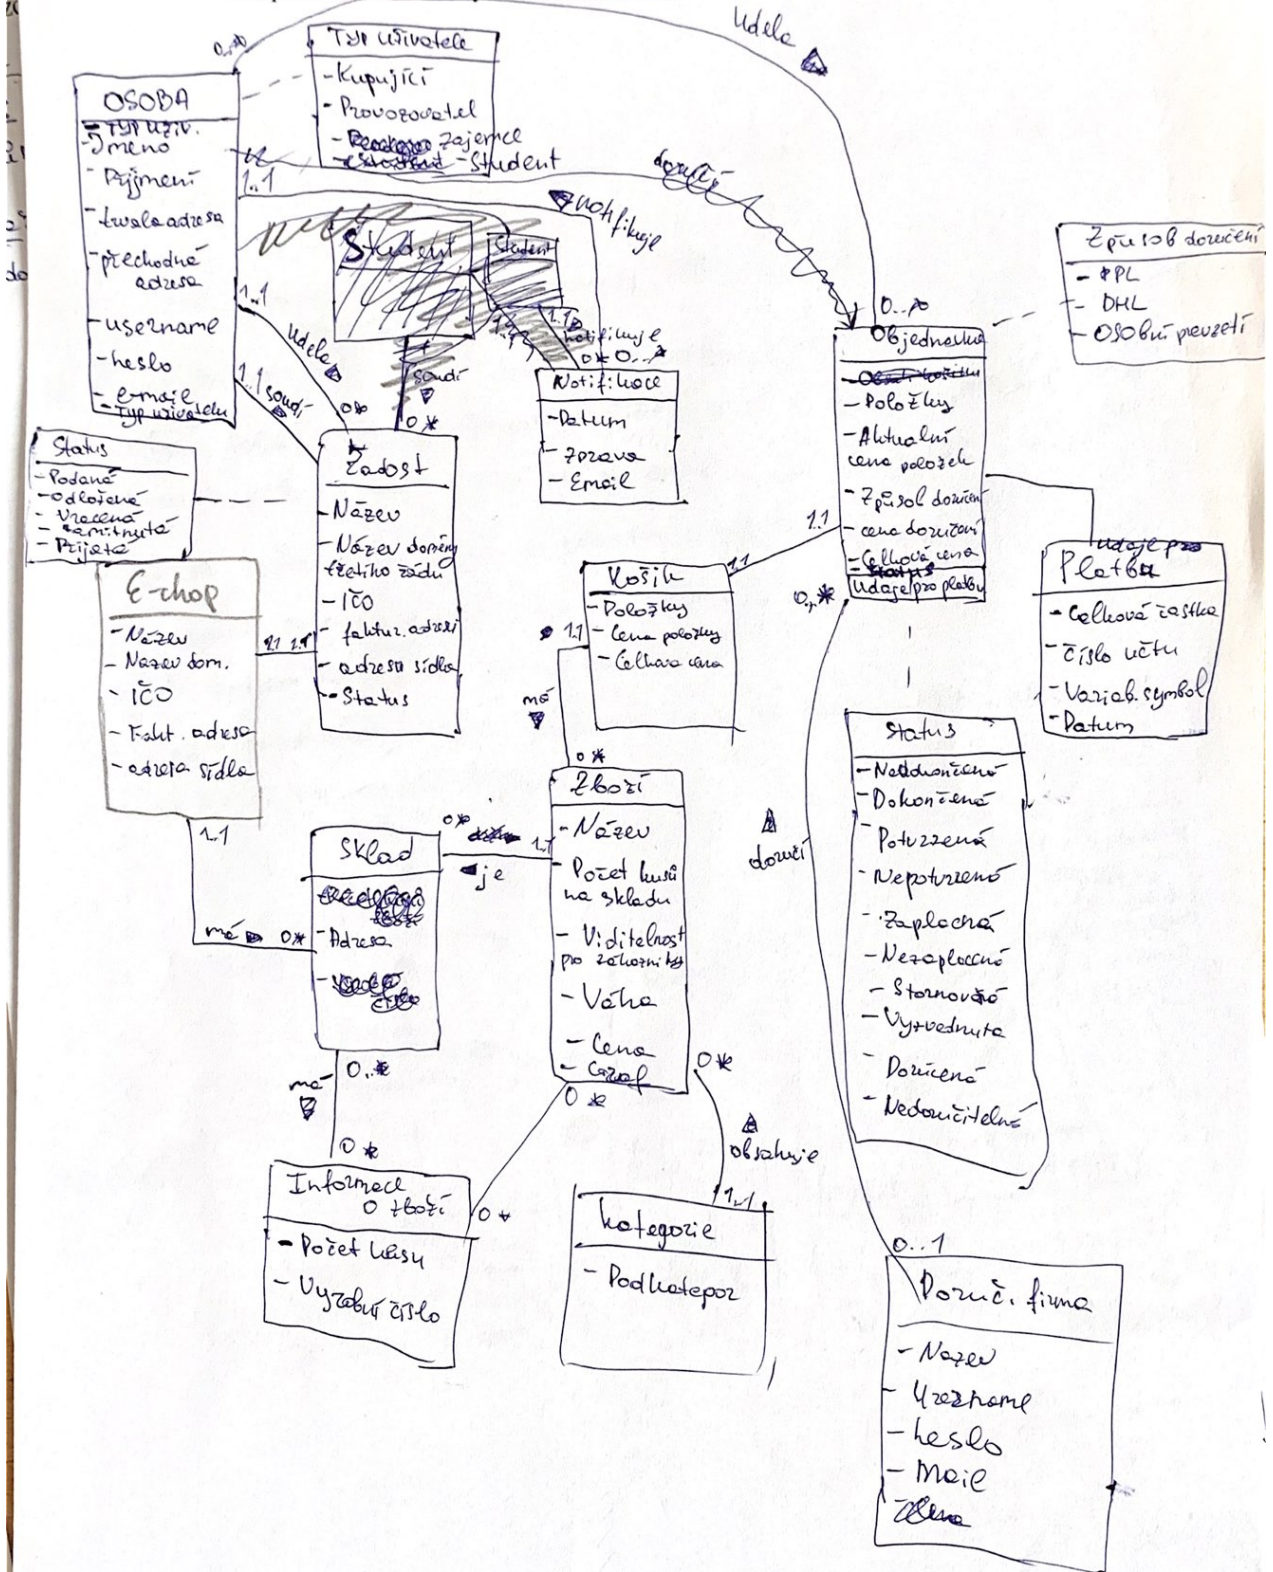 Udela
0..*
Typ uživatele
- Kupující
- Provozovatel
- Zajemce
- Student
OSOBA
- Typ uživ.
- Jmeno
- Příjmení
- trvala adresa
- přechodná
adresa
- username
- heslo
- e-maile
- Typ uživatelu
1..1
doručí
notifikuje
Student
Student
1..1
notifikuje
0* 0..*
1..1
Udela
0*
1..1
soudí
soudí
0*
Notifikace
- Datum
- Zprava
- Email
Způsob doručení
- PPL
- DHL
- OSobní prevzetí
0...*
Objednavka
- Položky
- Aktualní
cena položek
- Způsob doručení
- cena doručení
- Celková cena
- Status
Udaje pro platbu
Status
- Podaná
- odložená
- Vracená
- Zamítnutá
- Prijata
Žadost
- Název
- Název domény
třetího řádu
- IČO
- faktur. adresa
- adresa sídla
- Status
E-shop
- Název
- Nazev dom.
- IČO
- Fakt. adresa
- adresa sídla
1.1 1.1
Košík
- Položky
- Cena položky
- Celkova cena
1.1
1.1
1.1
má
0*
0..*
Udaje pro
Platbu
- Celková častka
- číslo učtu
- Variab. symbol
- Datum
Status
- Nedokončená
- Dokončená
- Potvrzená
- Nepotvrzená
- Zaplacná
- Nezaplacená
- Stornová
- Vyzvednuta
- Doručená
- Nedoručitelná
doručí
Zboží
- Název
- Počet kusů
na skladu
- Viditelnost
pro zákazníky
- Váha
- Cena
1..1
má
0*
Sklad
- Adresa
0*
1.1
je
0..*
má
0*
0*
0*
obsahuje
1..1
Informace
o zboží
- Počet kusu
- Vyrobní číslo
0*
Kategorie
- Podkategor
0..1
Doruč. firma
- Nazev
- Username
- heslo
- Mail